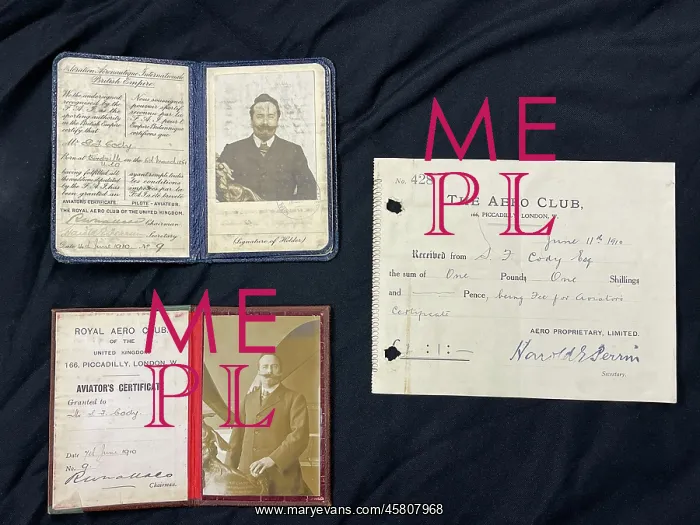 Fédération Aéronautique Internationale
British Empire
We the undersigned
recognised by the
F.A.I. as the
sporting authority
in the British Empire
certify that
Nous soussignés
pouvoir sportif
reconnu par la
F.A.I. pour l'
Empire Britannique
certifions que
Mr S F Cody
Born at on the
having fulfilled all
the conditions stipulated
by the F.A.I. has
been granted an
ayant rempli toutes
les conditions
imposées par la
F.A.I. a été breveté
AVIATOR'S CERTIFICATE PILOTE-AVIATEUR.
THE ROYAL AERO CLUB OF THE UNITED KINGDOM.
Chairman
Secretary
Date 7th June 1910 No. 9
(Signature of Holder)
ROYAL AERO CLUB
OF THE
UNITED KINGDOM
166, PICCADILLY, LONDON, W.
AVIATOR'S CERTIFICATE
Granted to
Mr S. F. Cody
Date 7th June 1910
No. 9
Chairman.
No. 428
THE AERO CLUB,
166, PICCADILLY, LONDON, W.
June 11th 1910
Received from S. F. Cody Esq
the sum of One Pounds One Shillings
and Pence, being Fee for Aviators
Certificate
AERO PROPRIETARY, LIMITED.
£1:1:—
Harold E Perrin
Secretary.
ME
PL
ME
PL
www.maryevans.com/45807968